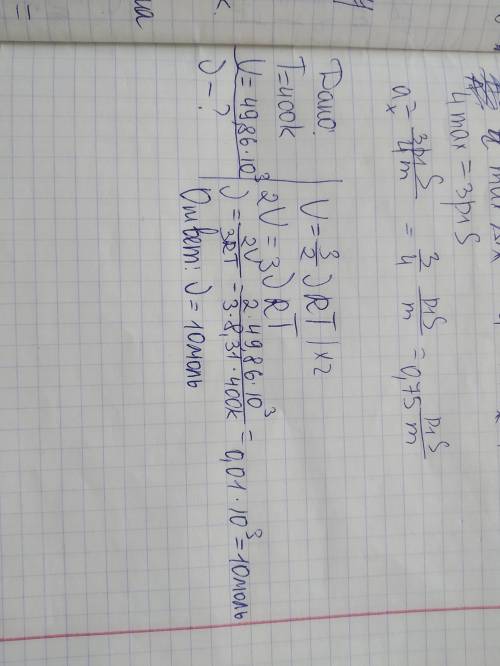 4max = 3p₁S
aₓ = 3p₁S/4m = 3/4 p₁S/m = 0,75 p₁S/m
Дано:
T=400k
U=49,86·10³
ν - ?
U = 3/2 νRT | ×2
2U = 3νRT
ν = 2U/3RT = 2·4986·10³/3·8,31·400k = 0,01·10³ = 10моль
Ответ: ν = 10моль